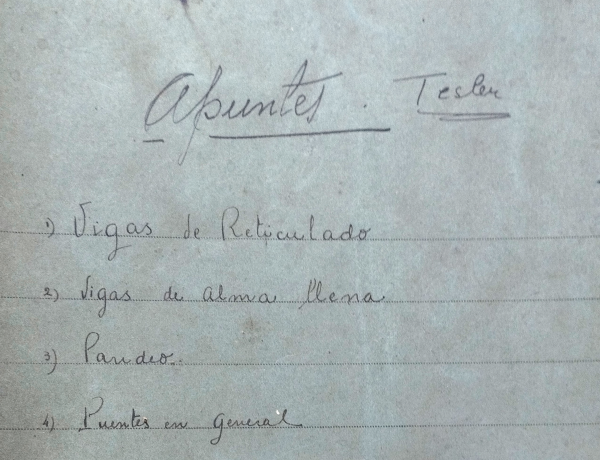 Apuntes. Tesler
1) Vigas de Reticulado
2) Vigas de alma llena
3) Pandeo.
4) Puentes en general